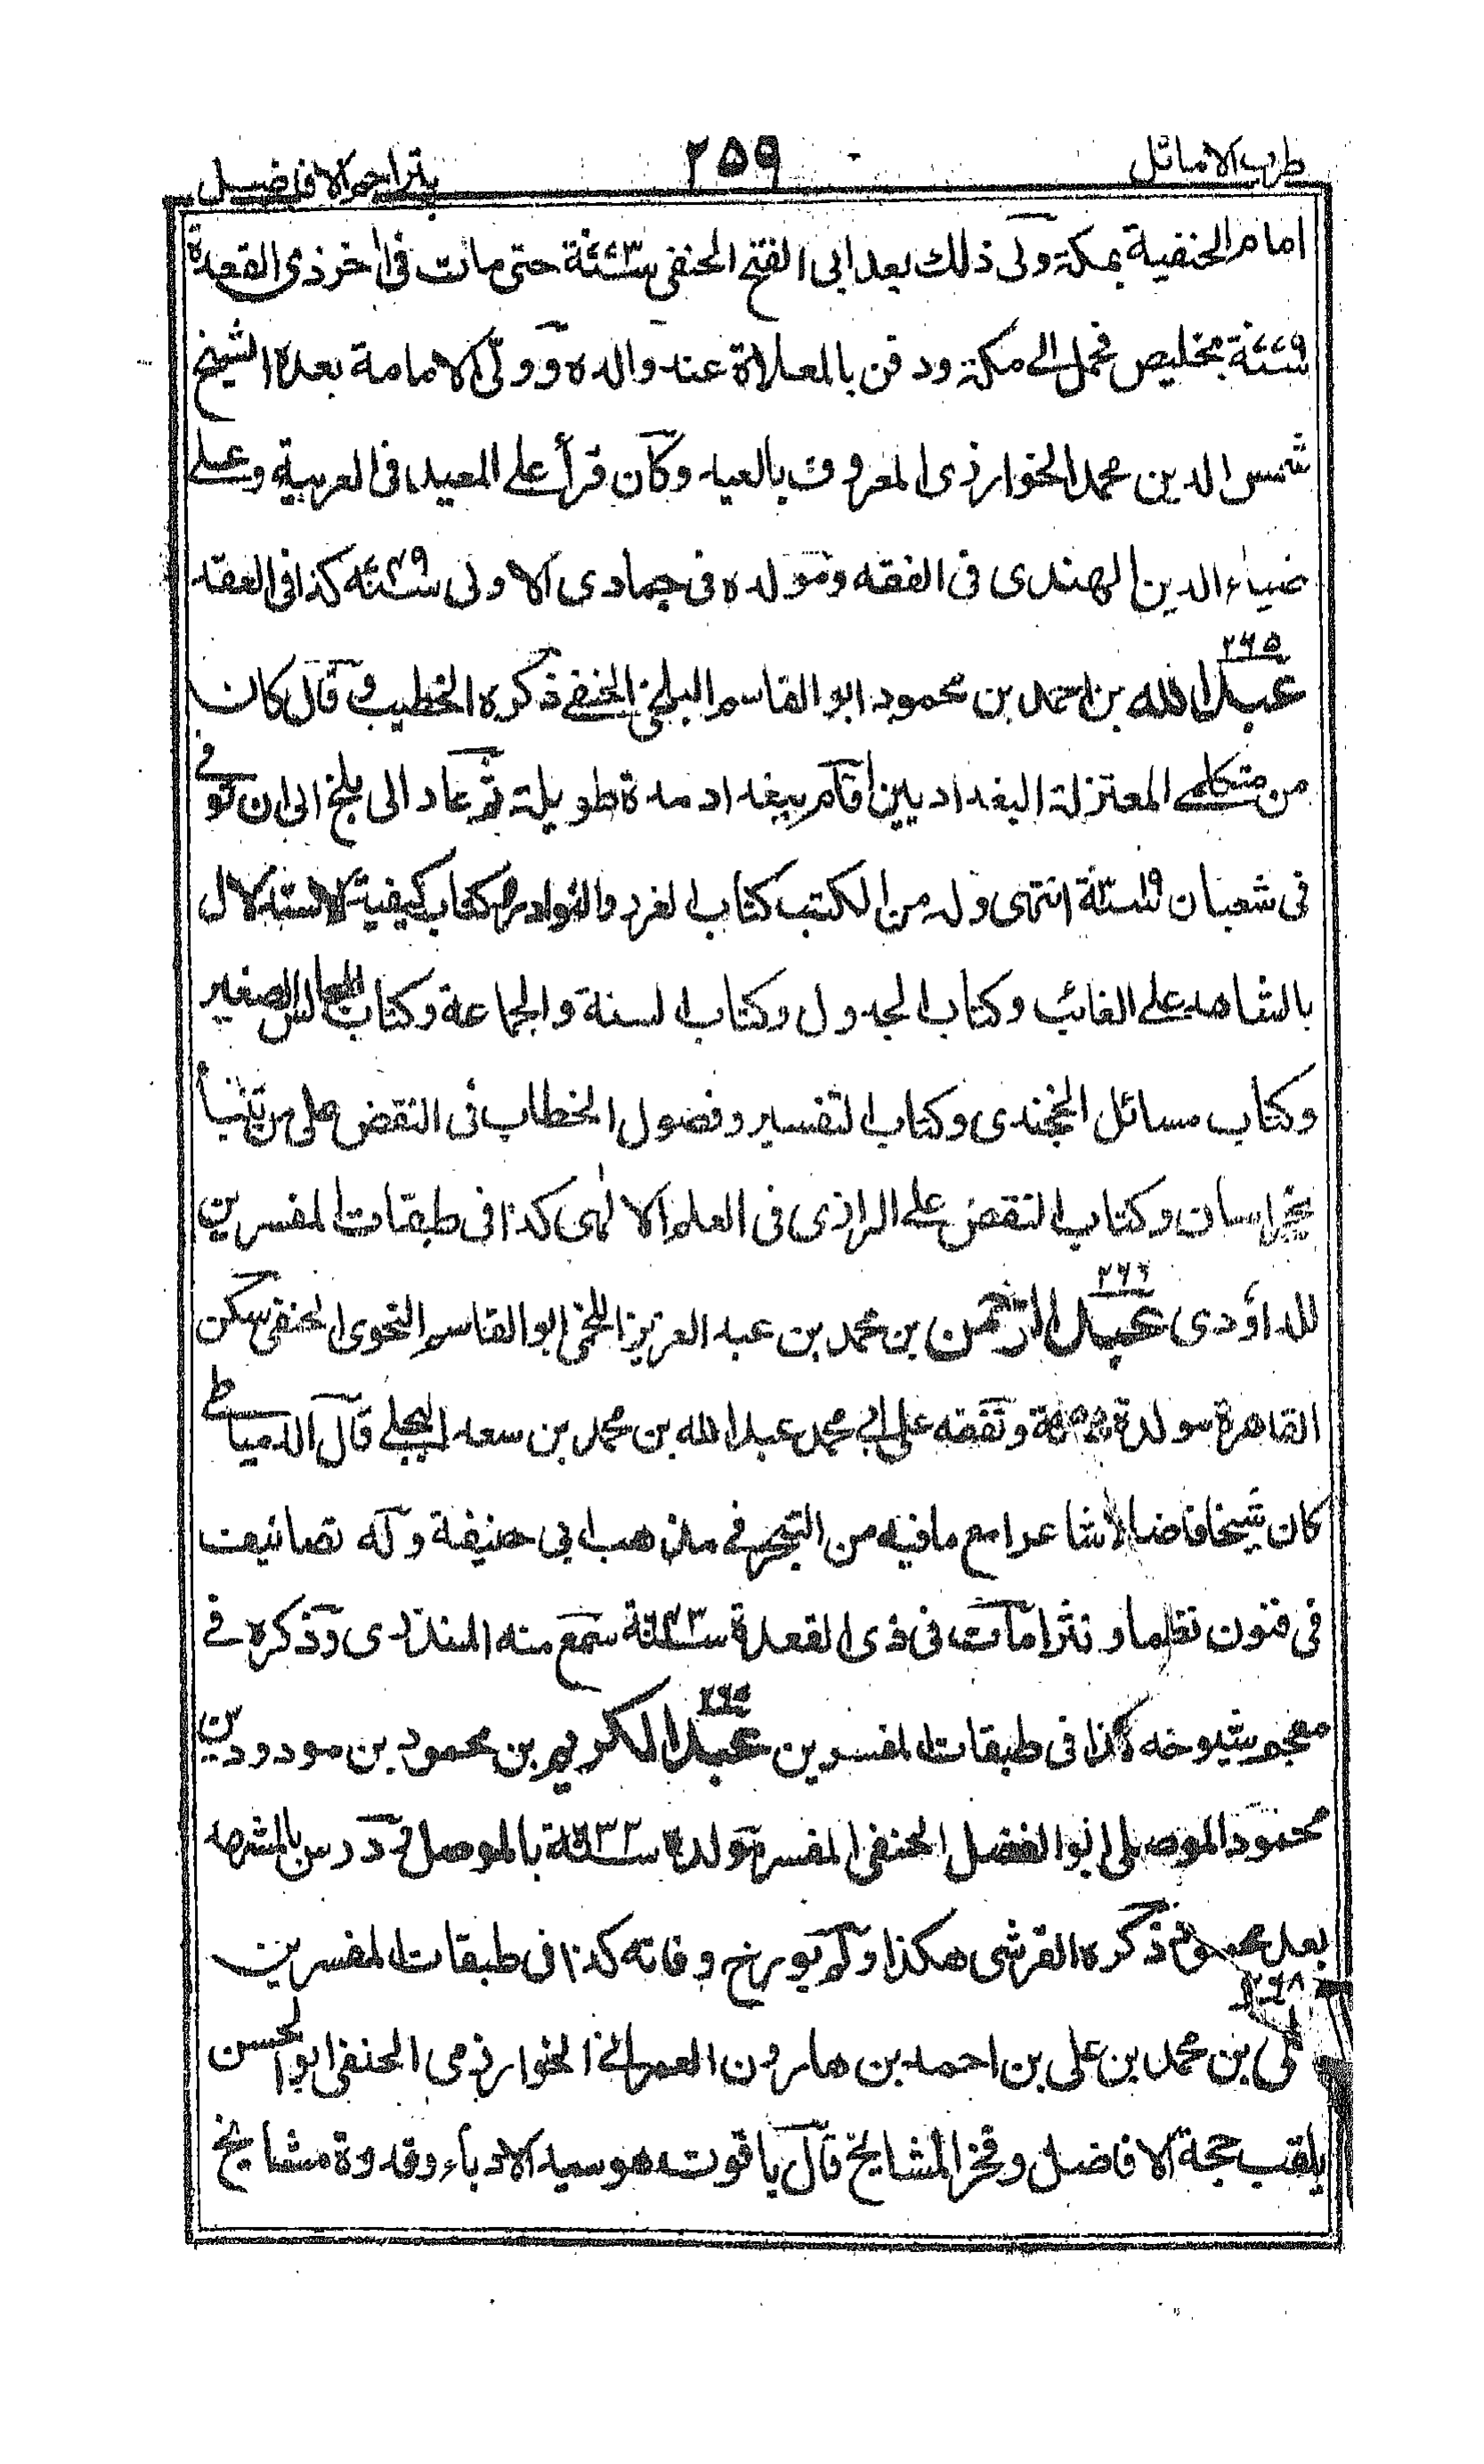 طرب الاماثل ٢٥٩ بتراجم الافاضل
امام الحنفية بمكة ولى ذلك بعد ابى الفتح الحنفى سنة ٧٧٣ حتى مات فى اٰخر ذى القعدة
سنة ٧٧٩ بخليص فحمل الى مكة ودفن بالمعلاة عند والده وولى الامامة بعده الشيخ
شمس الدين محمد الخوارزمى المعروف بالعيد وكان قرأ على المعيد فى العربية وعلى
ضياء الدين الهندى فى الفقه ومولده فى جمادى الاولى كذا فى العقد
٢٦٥
عبد الله بن احمد بن محمود ابو القاسم البلخى الحنفى ذكره الخطيب وقال كان
من متكلمى المعتزلة البغداديين اقام ببغداد مدة طويلة ثم عاد الى بلخ الى ان توفى
فى شعبان سنة ٣١٩ انتهى وله من الكتب كتاب الغرر والنوادر وكتاب كيفية الاستدلال
بالشاهد على الغائب وكتاب الجدول وكتاب السنة والجماعة وكتاب المجالس الصغير
وكتاب مسائل الخجندى وكتاب التفسير وفصول الخطاب فى النقض على من تنبأ
بخراسان وكتاب النقض على الرازى فى العلم الالٰهى كذا فى طبقات المفسرين
٢٦٦
للداؤدى عبد الرحمن بن محمد بن عبد العزيز اللخمى ابو القاسم النحوى الحنفى سكن
القاهرة مولدة وتفقه على ابى محمد عبد الله بن محمد بن سعد البجلى قال الدمياطى
كان شيخا فاضلا شاعرا مع ما فيه من التبحر فى مذهب ابى حنيفة وله تصانيف
فى فنون نظما ونثرا مات فى ذى القعدة سنة ٦٤٣ سمع منه المنذرى وذكره فى
معجم شيوخه كذا فى طبقات المفسرين عبد الكريم بن محمود بن مودود بن
محمود الموصلى ابو الفضل الحنفى المفسر مولدة بالموصل ودرس بالمشهد
بعد ذكره القرشى هكذا ولم يورخ وفاته كذا فى طبقات المفسرين
٢٦٨
على بن محمد بن على بن احمد بن هارون العمرانى الخوارزمى الحنفى ابو الحسن
يلقب حجة الافاضل وفخر المشايخ قال ياقوت هو سيد الادباء وقدوة مشايخ